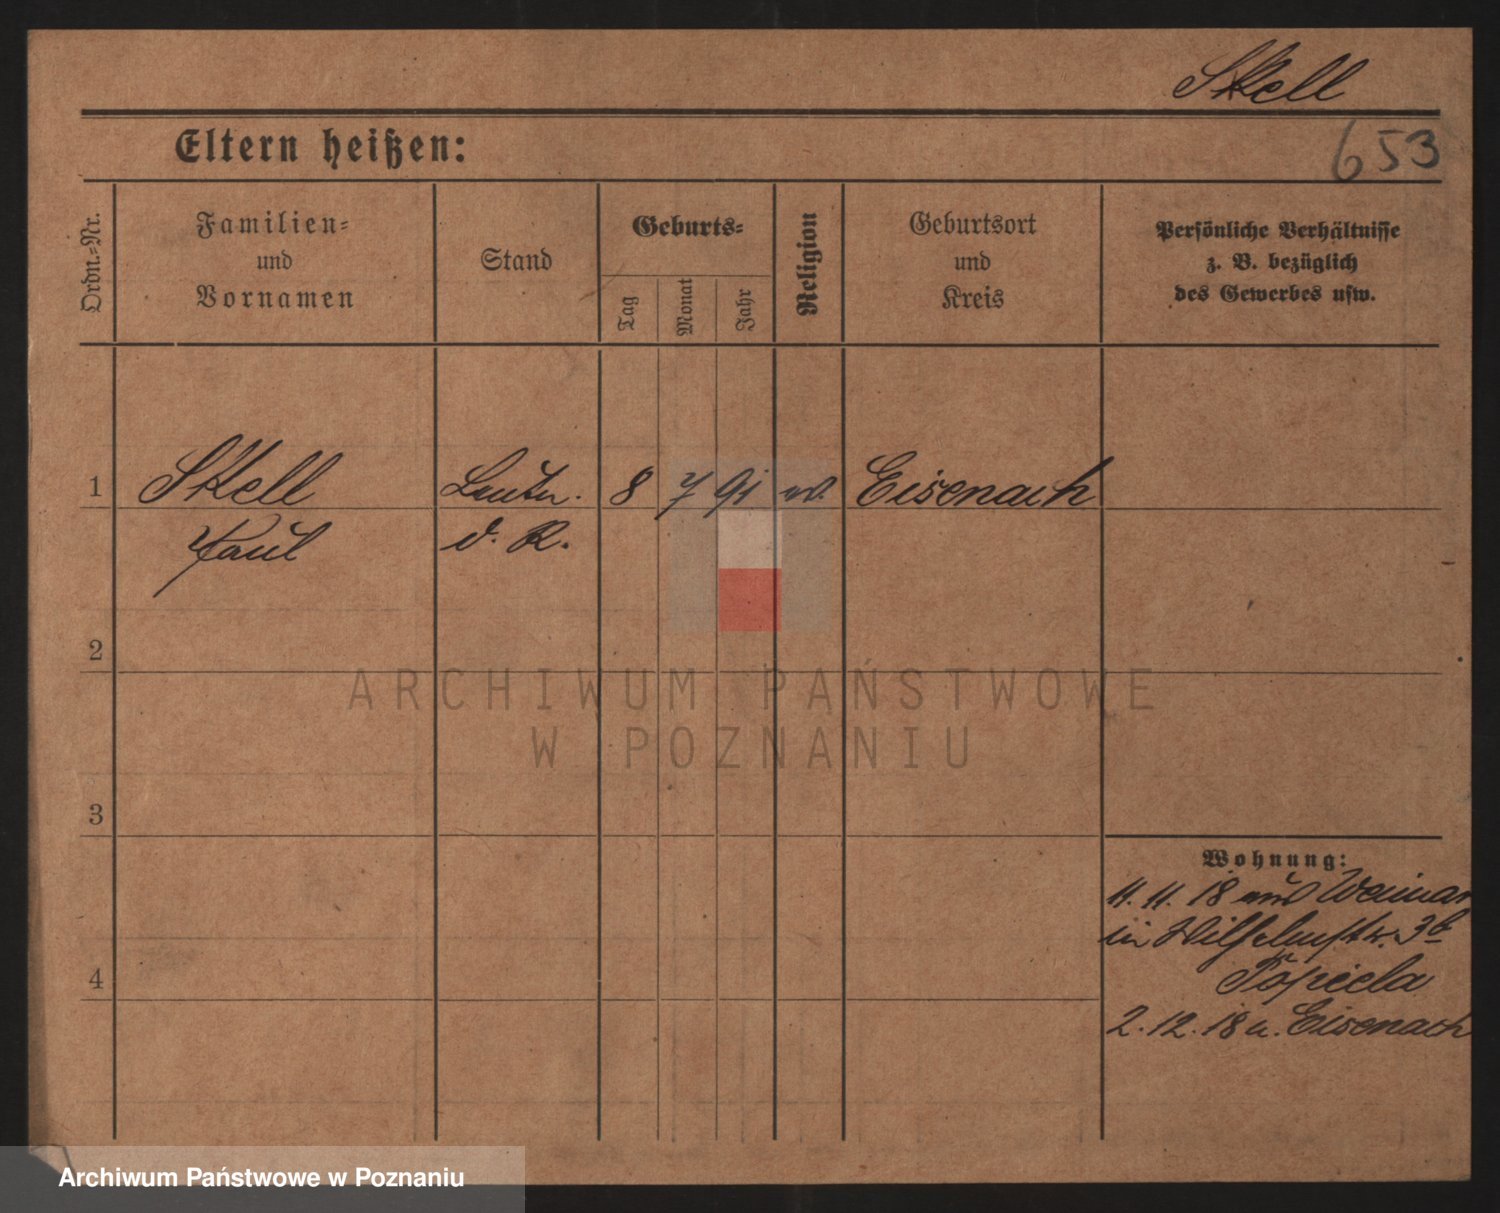 Skell
Eltern heißen:
653
Ordn.-Nr.
Familien-
und
Vornamen
Stand
Geburts-
Tag
Monat
Jahr
Religion
Geburtsort
und
Kreis
Persönliche Verhältnisse
z. B. bezüglich
des Gewerbes usw.
1 Skell Leutn. 8 7 91 ev. Eisenach
Paul d. R.
2
3
4
Wohnung:
11. 11. 18 aus Weimar
in Wilhelmstr. 36
2. 12. 18 n. Eisenach
ARCHIWUM PAŃSTWOWE
W POZNANIU
Archiwum Państwowe w Poznaniu